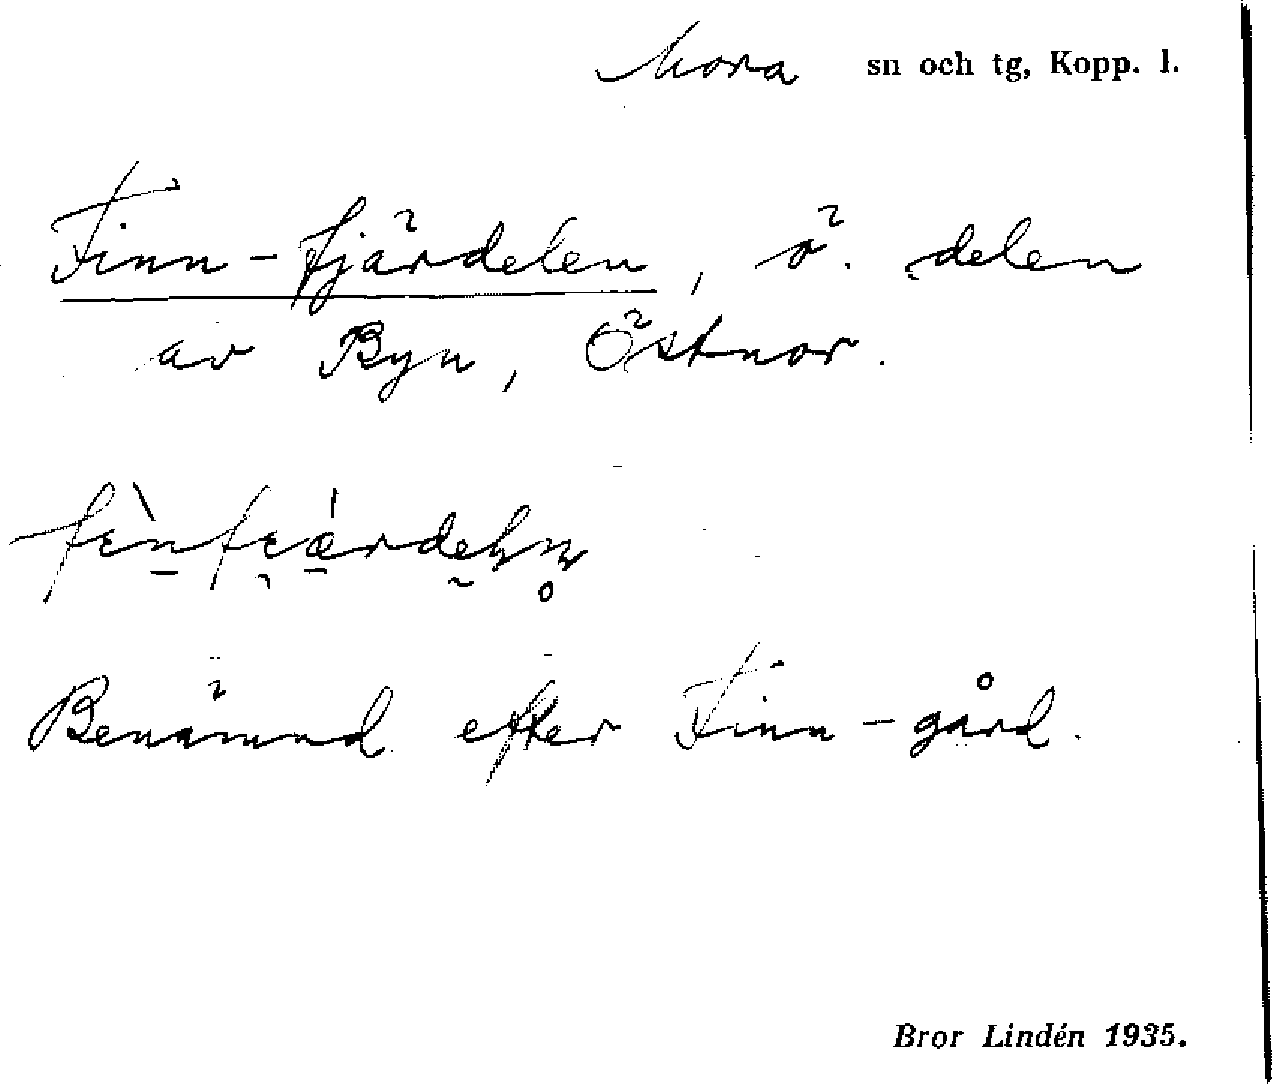 Mora sn och tg, Kopp. l.
Finn-fjärdelen, ö. delen
av Byn, Östnor.
Benämnd efter Finn-gård.
Bror Lindén 1935.